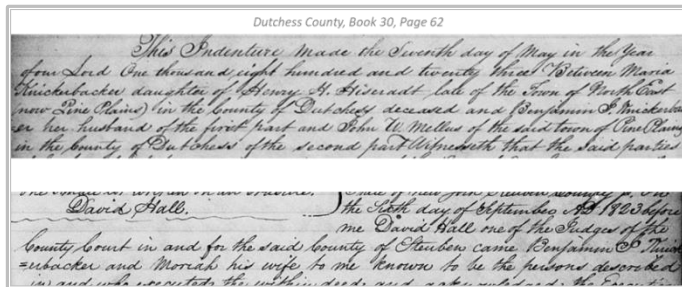 Dutchess County, Book 30, Page 62
This Indenture made the Seventh day of May in the Year
of our Lord One thousand eight hundred and twenty three Between Maria
Knickerbacker daughter of Henry H. Hiseradt late of the Town of North East
(now Pine Plains) in the County of Dutchess deceased and Benjamin P. Knickerback
er her husband of the first part and John W. Mellus of the said town of Pine Plains
in the County of Dutchess of the second part Witnesseth that the said parties
David Hall.
the Sixth day of September AD 1823 before
me David Hall one of the Judges of the
County Court in and for the said County of Steuben came Benjamin P. Knick
=erbacker and Moriah his wife to me known to be the persons described
in and who executed the within deed and